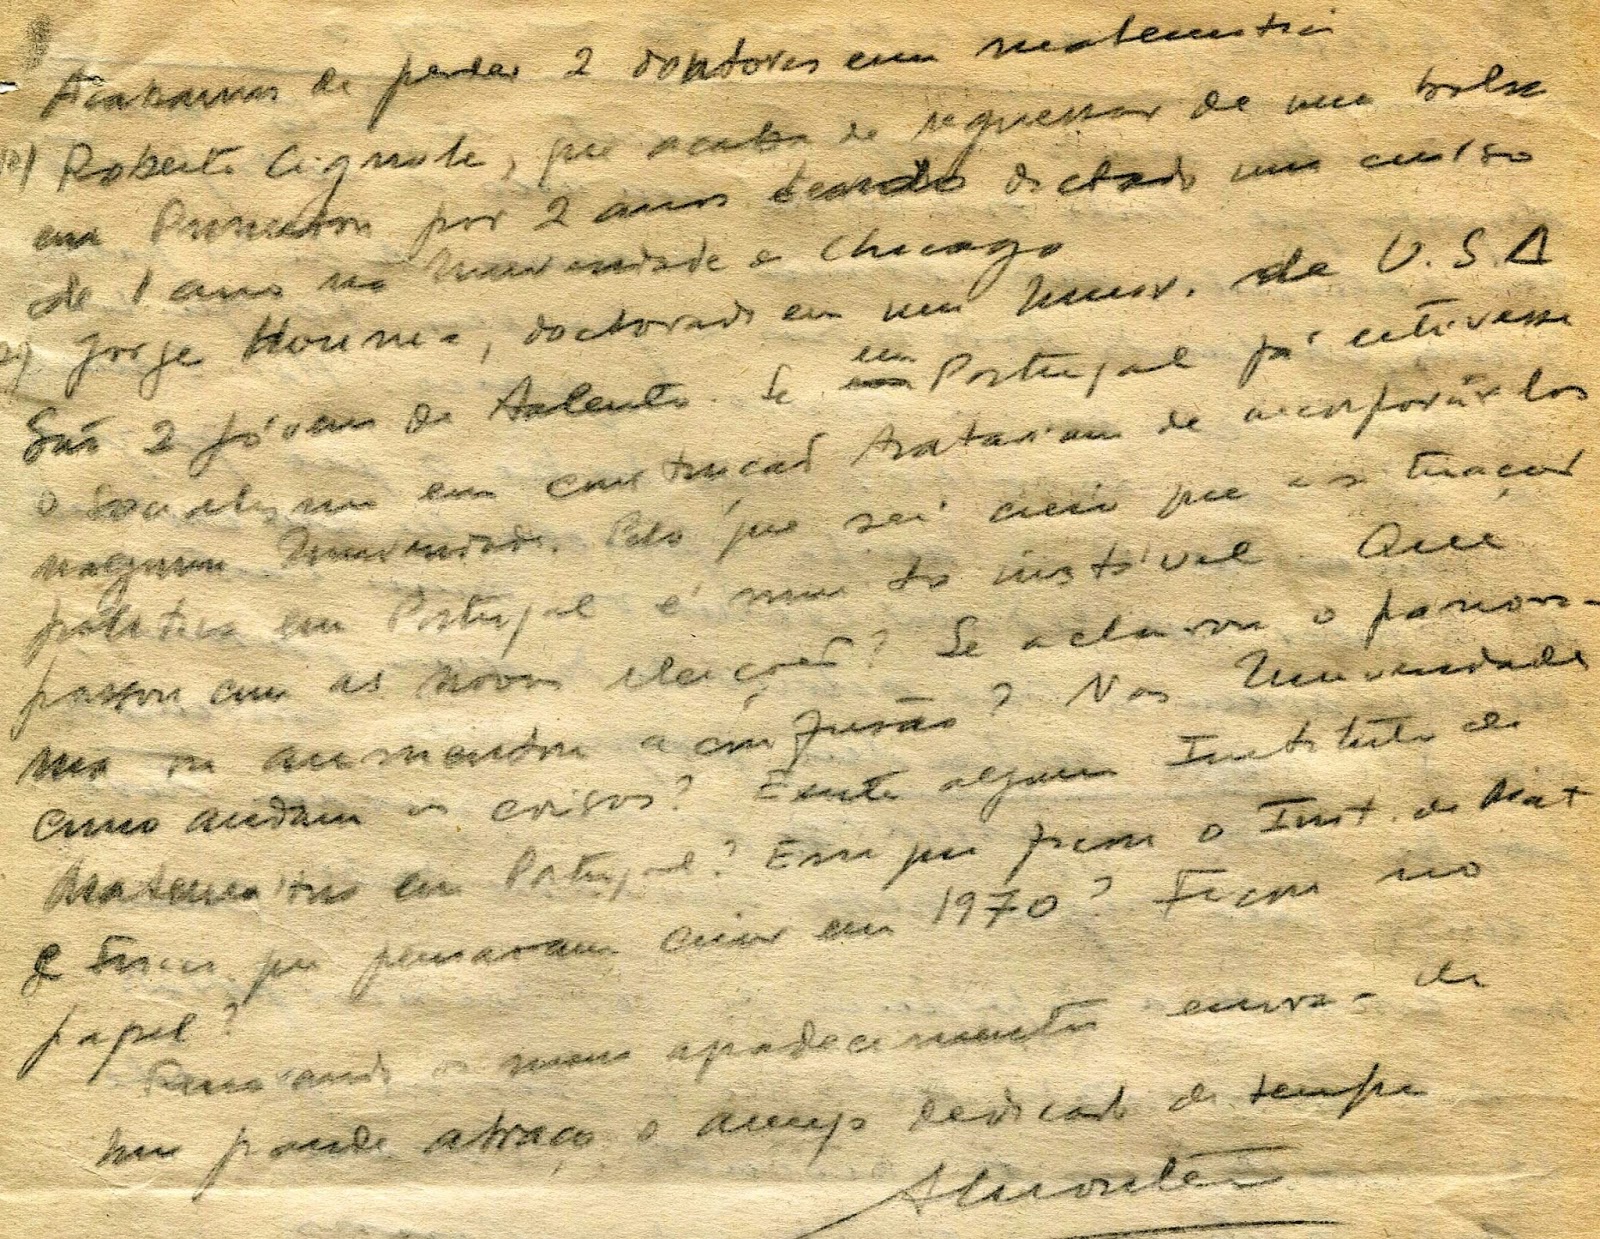 Acabamos de perder 2 doutores em matemática
1º) Roberto Cignole, que acaba de regressar de uma bolsa
em por 2 anos tendo dictado um curso
de 1 ano na Universidade de Chicago
2º) Jorge, doctorado em uma Univ. de U.S.A
São 2 jóvens de talento. Se em Portugal já estivesse
o socialismo em construcão tratariam de incorporár los
nalguma Universidade. Pelo que sei creio que a situação
politica em Portugal é muito instável. Que
passou com as novas eleições? Se aclarou o panora-
ma ou aumentou a confusão? Nas Universidades
como andam as coisas? Existe algum Instituto de
Matemática em Portugal? Em que ficou o Inst. de Mat
e Fisica que pensavam criar em 1970? Ficou no
papel?
Renovando os meus agradecimentos envia-de
um grande abraço o amigo dedicado de tempre
AMonteiro